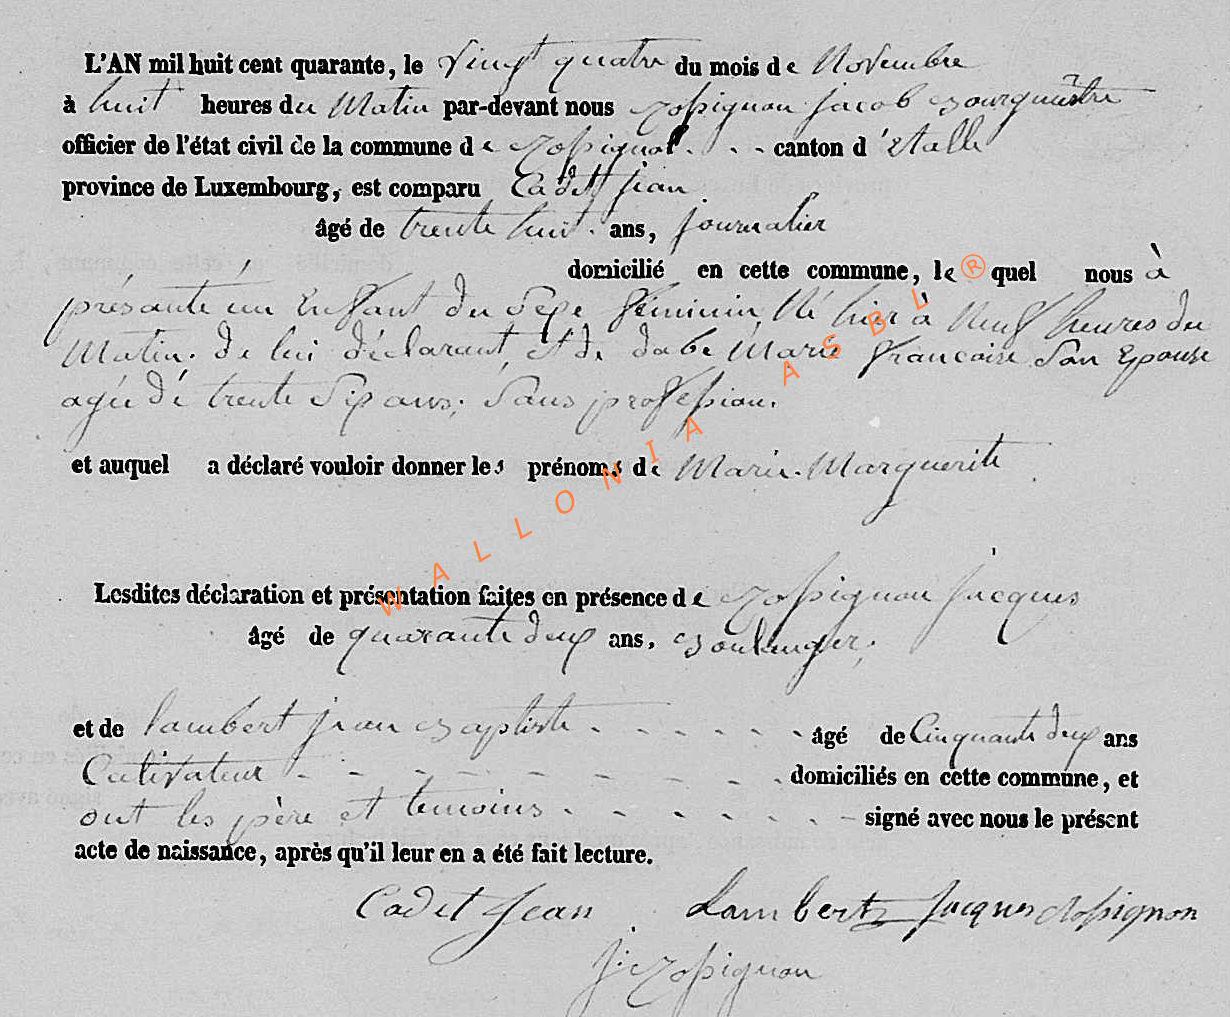 L'AN mil huit cent quarante, le Vingt quatre du mois de Novembre
à huit heures du Matin par-devant nous Rossignon jacob Bourgmêstre
officier de l'état civil de la commune de Rossignol . - - canton d'étalle
province de Luxembourg, est comparu Cadet jean
âgé de trente huit. ans, journalier
domicilié en cette commune, lequel nous à
présenté un Enfant du Sexe féminin, Né hier à Neuf heures du
Matin. de lui déclarant, et de dabé Marie françoise Son Epouse
agée dé trente Six ans; Sans profession.
et auquel a déclaré vouloir donner les prénoms de Marie-Marguerite
Lesdites déclaration et présentation faites en présence de Rossignon jacques
âgé de quarante deux ans, Boulanger;
et de lambert jean Baptiste - - - - - - âgé de Cinquante deux ans
Cultivateur - - - - - - - - - - domiciliés en cette commune, et
ont les père et temoins - - - - - - - signé avec nous le présent
acte de naissance, après qu'il leur en a été fait lecture.
Cadet Jean Lambert Jacques Rossignon
j: Rossignon
WALLONIA ASBL ®